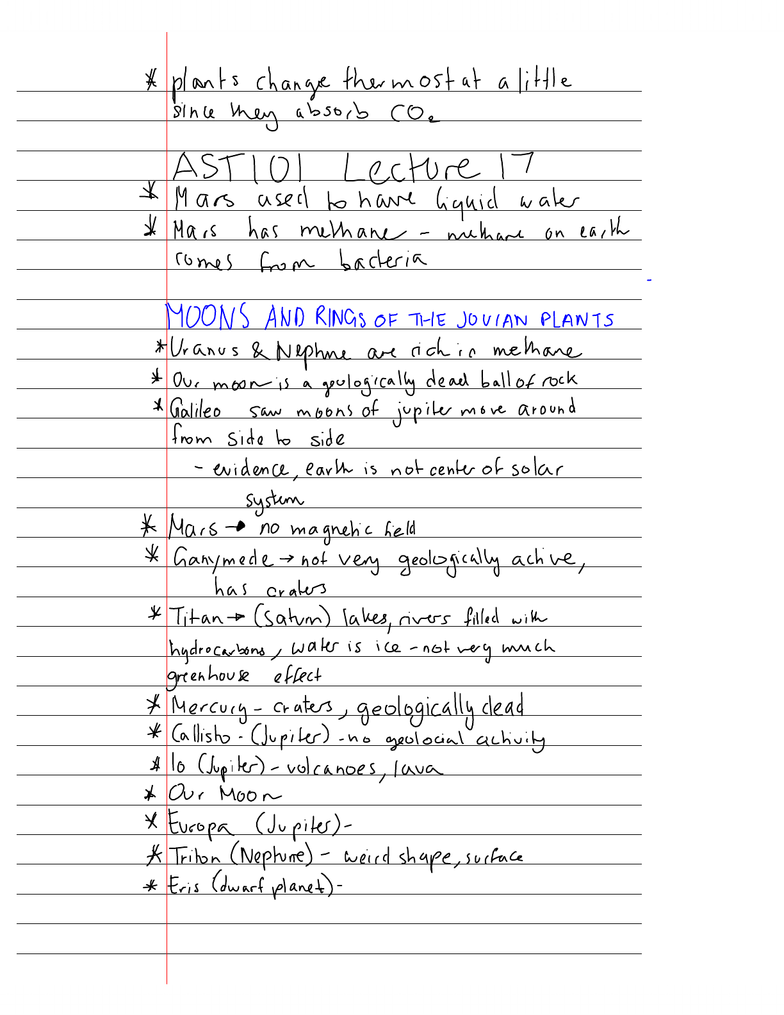 * plants change thermostat a little
since they absorb CO₂
AST101 Lecture 17
* Mars used to have liquid water
* Mars has methane - methane on earth
comes from bacteria
MOONS AND RINGS OF THE JOVIAN PLANTS
* Uranus & Nephne are rich in methane
* Our moon is a geologically dead ball of rock
* Galileo saw moons of jupiter move around
from side to side
- evidence, earth is not center of solar
system
* Mars → no magnetic field
* Ganymede → not very geologically active,
has craters
* Titan → (Saturn) lakes, rivers filled with
hydrocarbons, water is ice - not very much
greenhouse effect
* Mercury - craters, geologically dead
* Callisto - (Jupiter) - no geolocial activity
* Io (Jupiter) - volcanoes, lava
* Our Moon
* Europa (Jupiter) -
* Triton (Neptune) - weird shape, surface
* Eris (dwarf planet) -